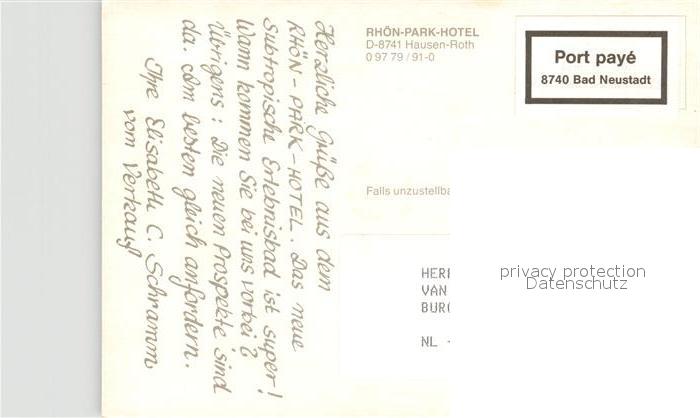 Herzliche Grüße aus dem
RHÖN-PARK-HOTEL. Das neue
Subtropische Erlebnisbad ist super!
Wann kommen Sie bei uns vorbei?
Übrigens: Die neuen Prospekte sind
da. Am besten gleich anfordern.
Ihre Elisabeth C. Schramm
vom Verkauf
RHÖN-PARK-HOTEL
D-8741 Hausen-Roth
0 97 79 / 91-0
Port payé
8740 Bad Neustadt
Falls unzustellba
HER
VAN
BUR
NL -
privacy protection
Datenschutz